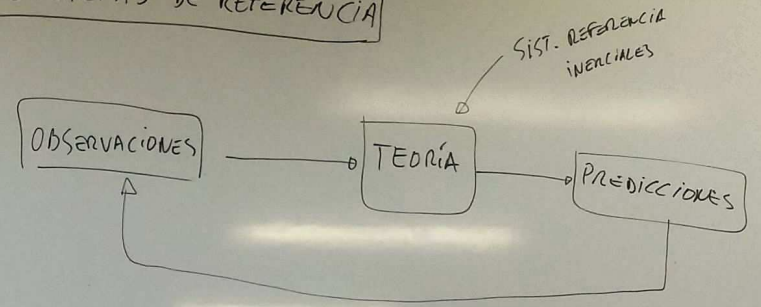 DE REFERENCIA
SIST. REFERENCIA
INERCIALES
OBSERVACIONES
TEORÍA
PREDICCIONES